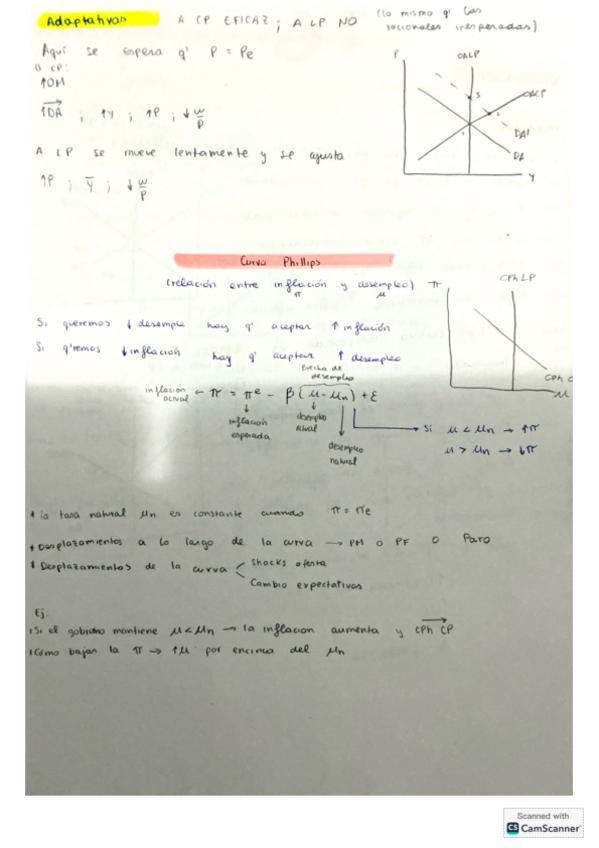 Adaptativas A CP EFICAZ ; A LP NO (lo mismo q' las racionales inesperadas)
Aquí se espera q' P = Pe
a CP:
↑OM
↑DA ; ↑Y ; ↑P ; ↓ w/P
A LP se mueve lentamente y se ajusta
↑P ; Y̅ ; ↓ w/P
P
OALP
OACP
DA'
DA
Y
Curva Phillips
(relación entre inflación y desempleo)
π μ
π
CPh LP
Si queremos ↓ desemple hay q' aceptar ↑ inflación
Si q'remos ↓inflación hay q' aceptar ↑ desempleo
CPh C
μ
Brecha de desempleo
inflación actual ← π = πe - β(μ - μn) + ε
inflación esperada
desempleo actual
desempleo natural
Si μ < μn → ↑π
μ > μn → ↓π
la tasa natural μn es constante cuando π = πe
Desplazamientos a lo largo de la curva → PM o PF o Paro
Desplazamientos de la curva
Shocks oferta
Cambio expectativas
Ej:
Si el gobierno mantiene μ < μn → la inflacion aumenta y CPh CP
Cómo bajan la π → ↑μ por encima del μn
Scanned with
CS CamScanner